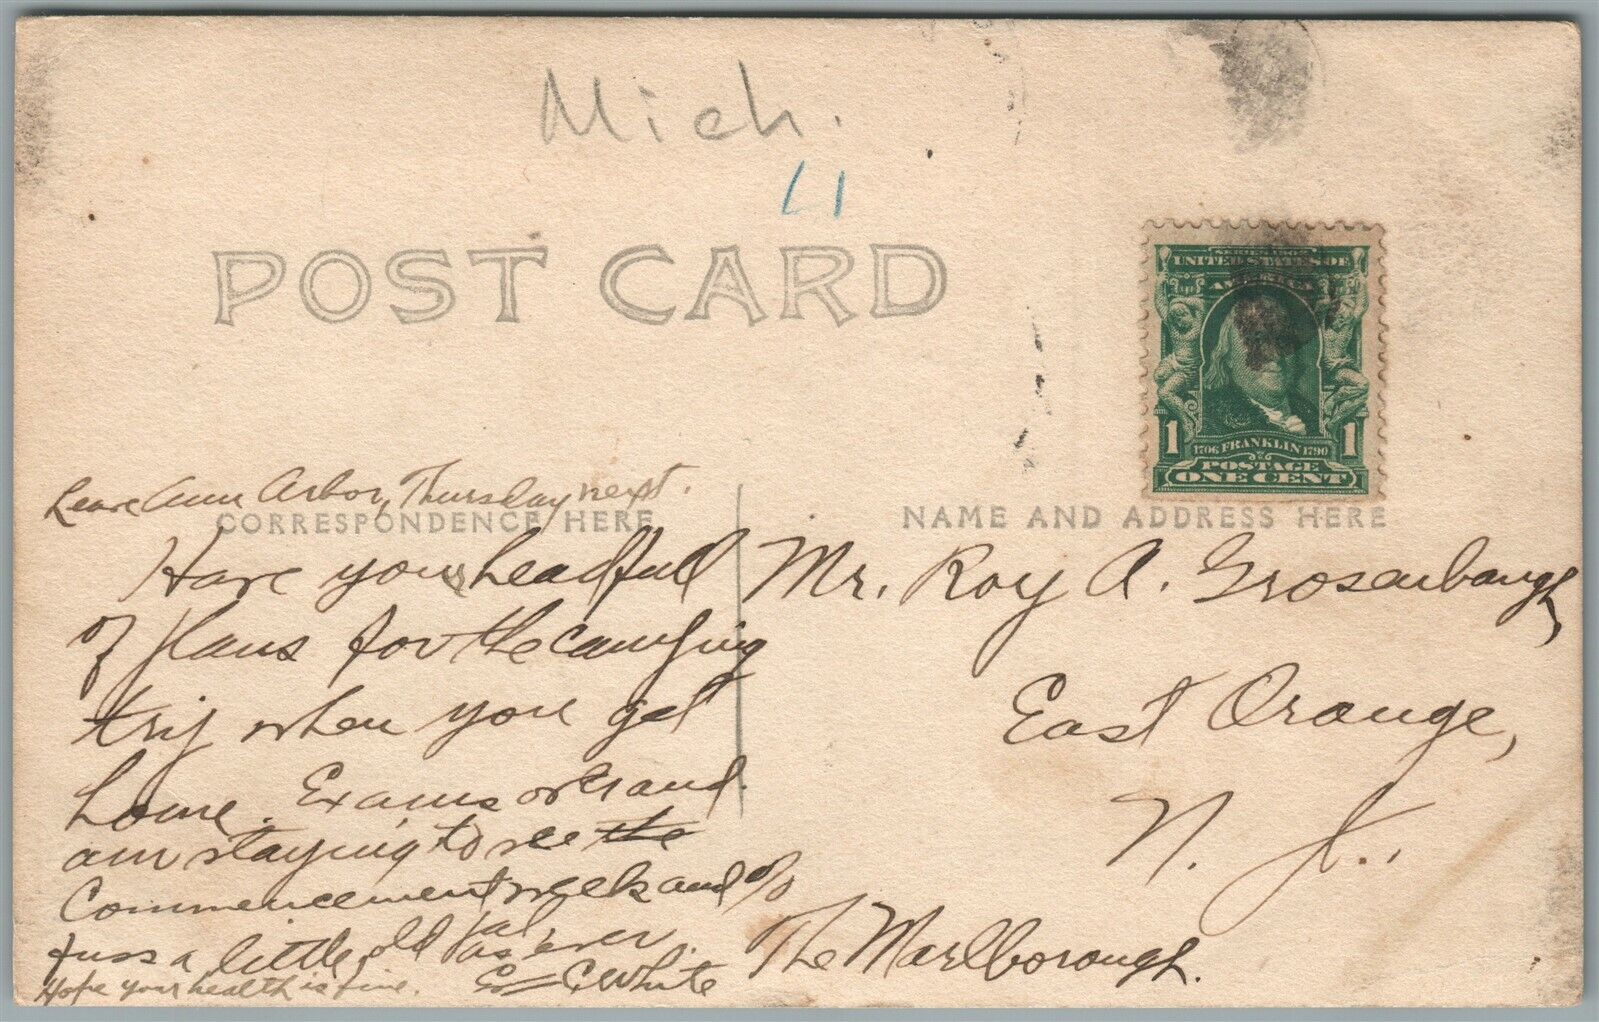 Mich.
11
POST CARD
UNITED STATES OF
AMERICA
1 1706 FRANKLIN 1790 1
POSTAGE
ONE CENT
Leave Ann Arbor, Thursday next.
CORRESPONDENCE HERE
NAME AND ADDRESS HERE
Have you headfull
of plans for the camping
trip when you get
home. Exams over and
am staying to see the
Commencement week and
fuss a little, old pal
as ever.
Hope your health is fine.
C. White
Mr. Roy A. Grosenbaugh,
East Orange,
N. J.,
c/o
The Marlborough.